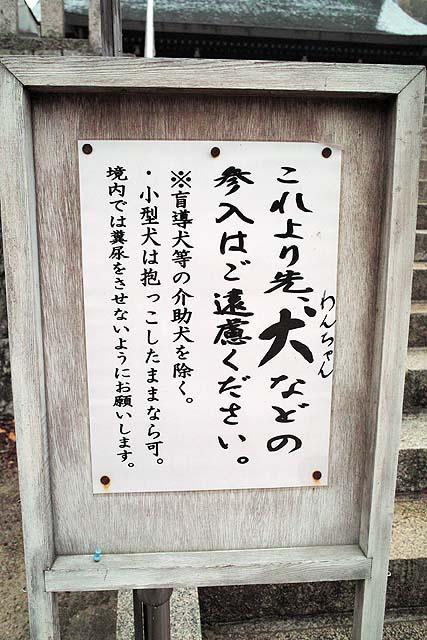 これより先、犬などの
わんちゃん
参入はご遠慮ください。
※盲導犬等の介助犬を除く。
・小型犬は抱っこしたままなら可。
境内では糞尿をさせないようにお願いします。